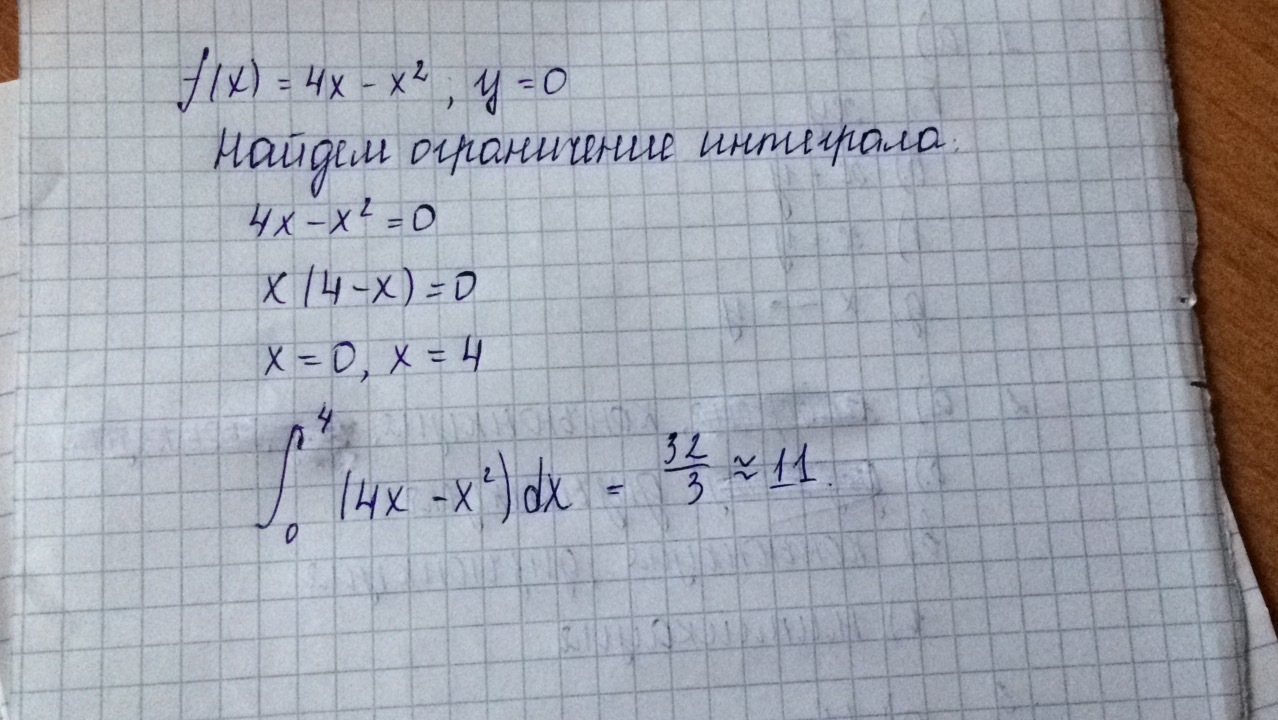 f(x) = 4x - x², y = 0
Найдем ограничение интеграла:
4x - x² = 0
x(4 - x) = 0
x = 0, x = 4
∫₀⁴ (4x - x²)dx = 32/3 ≈ 11.